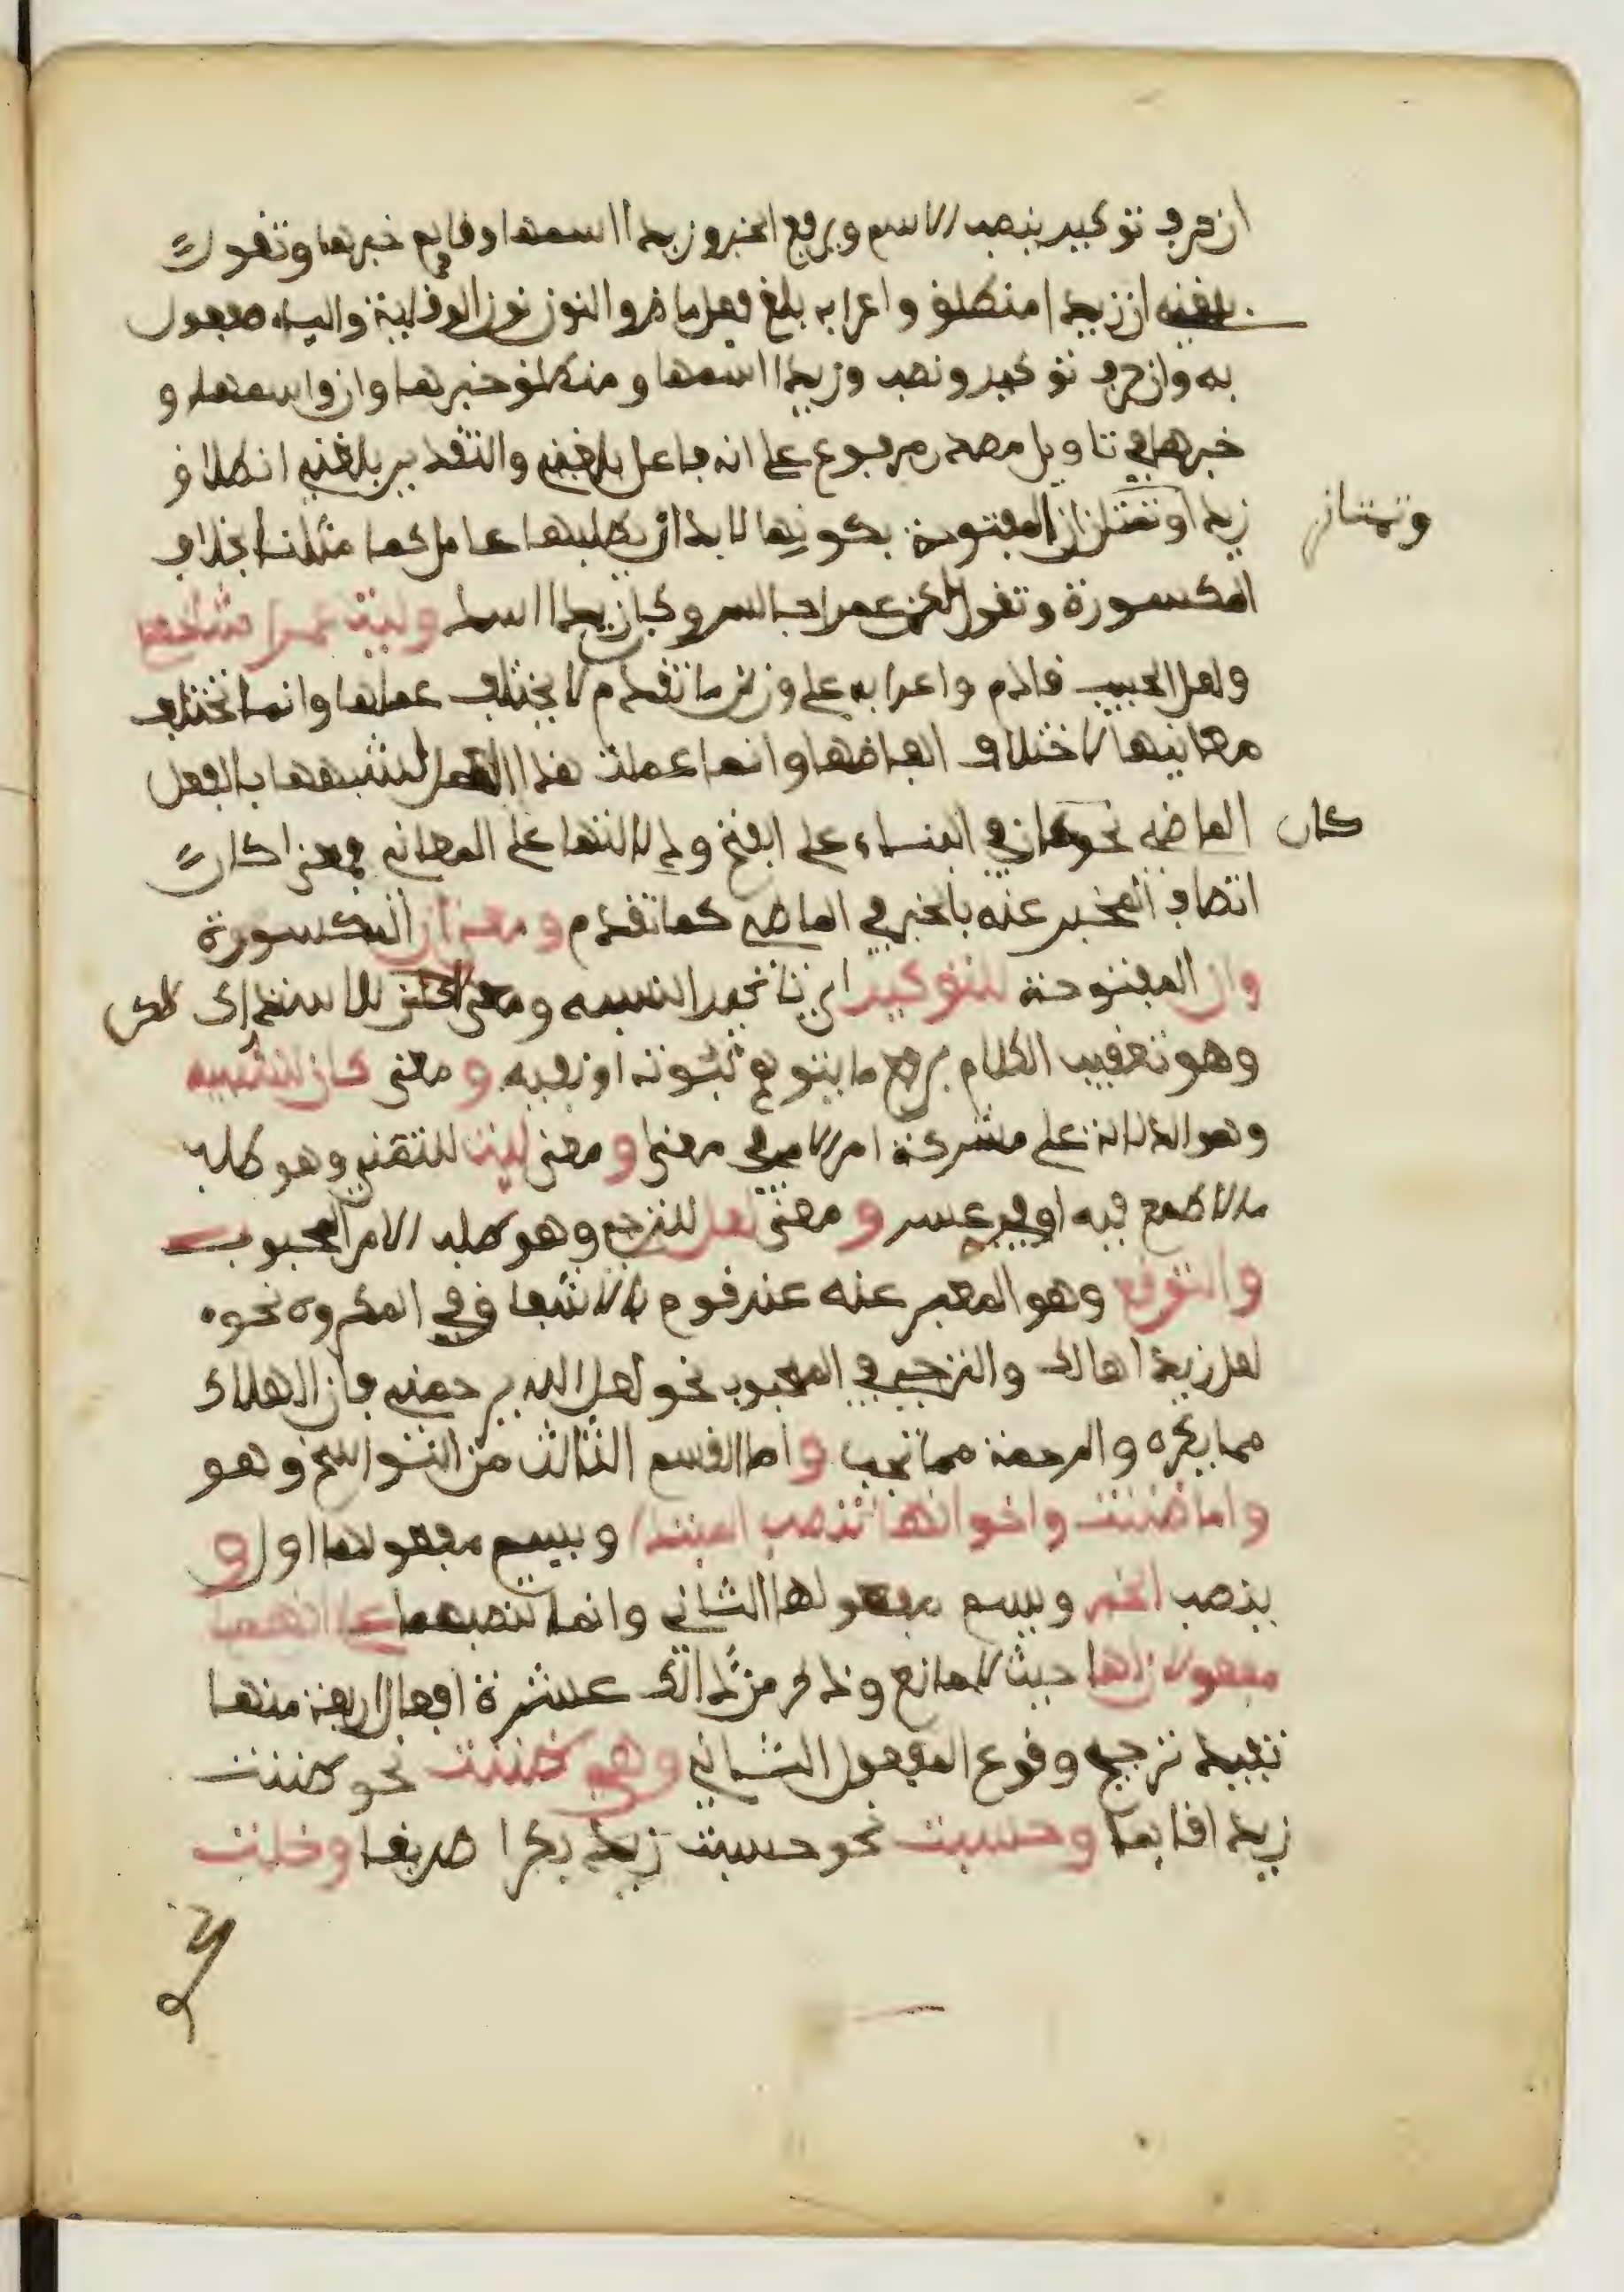 ان حرف توكيد ينصب الاسم ويرفع الخبر وزيدا اسمها وقايم خبرها وتقول
بلغني ان زيدا منطلق واعرابه بلغ فعل ماض والنون نون الوقاية والياء مفعول
به وان حرف توكيد ونصب وزيدا اسمها ومنطلق خبرها وان واسمها و
خبرها في تاويل مصدر مرفوع على انه فاعل بلغني والتقدير بلغني انطلاق
زيد او تمتاز ان المفتوحة بكونها لا بد ان يطلبها عامل كما مثلنا بخلاف
وتمتاز
المكسورة وتقول لكن عمرا جالس وكان زيدا اسد وليت عمرا شاخص
ولعل الحبيب قادم واعرابه على وزن ما تقدم لا يختلف عملها وانما تختلف
معانيها لاختلاف الفاضها وانما عملت هذا العمل لشبهها بالفعل
الماضي نحو كان في البناء على الفتح ودلالتها على المعاني فمعنى كان
كان
اتصاف المخبر عنه بالخبر في الماضي كما تقدم ومعنى ان المكسورة
وان المفتوحة للتوكيد اي تاكيد النسبه ومعنى لكن للاستدراك
لكن
وهو تعقيب الكلام برفع ما يتوهم ثبوته او نفيه ومعنى كان للتشبيه
وهو الدلالة على مشركة امر لامر في معنى ومعنى ليت للتمني وهو طلب
ما لا طمع فيه او فيه عسر ومعنى لعل للترجي وهو طلب الامر المحبوب
والتوقع وهو المعبر عنه عند قوم بالاشفاق في المكروه نحوه
لعل زيدا هالك والترجي في المحبوب نحو لعل الله يرحمني فان الهلاك
مما يكره والمرحمة مما تحب واما القسم الثالث من النواسخ وهو
واما ضننت واخواتها تنصب المبتدا ويسمى مفعولها اول و
ينصب الخبر ويسمى مفعولها الثاني وانما تنصبهما على انهما
مفعولان لها حيث لا مانع وذكر من ذالك عشرة افعال اربعة منها
تفيد ترجيح وقوع المفعول الثاني وهي ظننت نحو ظننت
زيدا قايما وحسبت نحو حسبت زيد بكرا صديقا وخلت